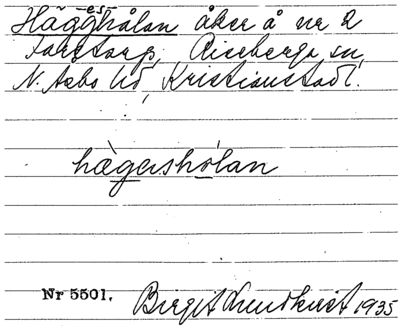 Hägg-es-hålan åker å nr 2
Farstorp, Riseberga sn,
N. Åsbo hd, Kristianstad l.
hægershòlan
Nr 5501. Birgit Lundkvist 1935